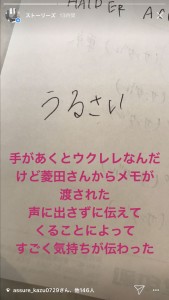 ストーリーズ
うるさい
手があくとウクレレなんだ
けど菱田さんからメモが
渡された
声に出さずに伝えて
くることによって
すごく気持ちが伝わった
assure_kazu0729さん、他146人